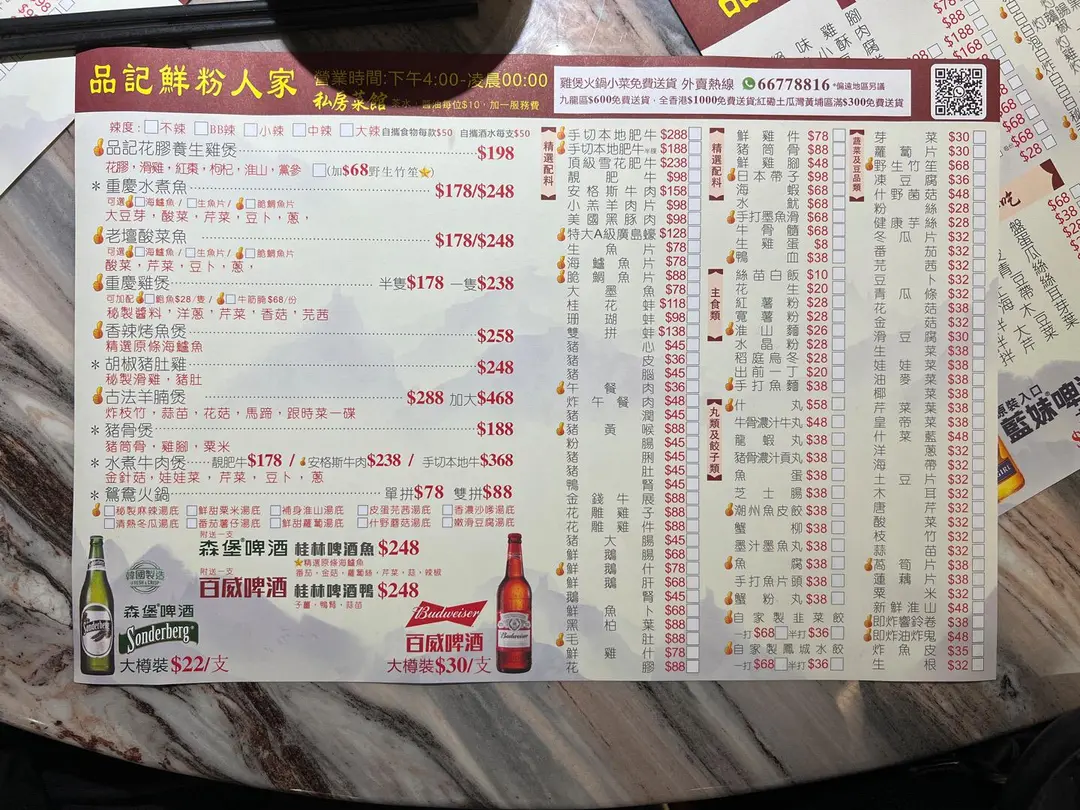 品記鮮粉人家
私房菜館
營業時間:下午4:00-凌晨00:00
茶水、醬油每位$10,加一服務費
雞煲火鍋小菜免費送貨 外賣熱線 66778816 *偏遠地區另議
九龍區$600免費送貨,全香港$1000免費送貨,紅磡土瓜灣黃埔區滿$300免費送貨
辣度: 不辣 BB辣 小辣 中辣 大辣 自攜食物每款$50 自攜酒水每支$50
品記花膠養生雞煲 $198
花膠,滑雞,紅棗,枸杞,淮山,黨參 (加$68野生竹笙)
*重慶水煮魚 $178/$248
可選 海鱸魚 / 生魚片 / 脆鯛魚片
大豆芽,酸菜,芹菜,豆卜,蔥,
老壇酸菜魚 $178/$248
可選 海鱸魚 / 生魚片 / 脆鯛魚片
酸菜,芹菜,豆卜,蔥,
重慶雞煲 半隻$178 一隻$238
可加配 鮑魚$28/隻 / 牛筋腩$68/份
秘製醬料,洋蔥,芹菜,香菇,芫茜
香辣烤魚煲 $258
精選原條海鱸魚
*胡椒豬肚雞 $248
秘製滑雞,豬肚
古法羊腩煲 $288 加大$468
炸枝竹,蒜苗,花菇,馬蹄,跟時菜一碟
*豬骨煲 $188
豬筒骨,雞腳,粟米
*水煮牛肉煲 靚肥牛$178 / 安格斯牛肉$238 / 手切本地牛$368
金針菇,娃娃菜,芹菜,豆卜,蔥
*鴛鴦火鍋 單拼$78 雙拼$88
秘製麻辣湯底 鮮甜粟米湯底 補身淮山湯底 皮蛋芫茜湯底 香濃沙嗲湯底
清熱冬瓜湯底 番茄薯仔湯底 鮮甜蘿蔔湯底 什野蘑菇湯底 嫩滑豆腐湯底
附送一支
森堡啤酒 桂林啤酒魚 $248
精選原條海鱸魚
番茄、金菇、蘿蔔絲、芹菜、蒜、辣椒
附送一支
百威啤酒 桂林啤酒鴨 $248
子薑、鴨腎、蒜苗
韓國製造
森堡啤酒
Sonderberg
大樽裝$22/支
Budweiser
百威啤酒
大樽裝$30/支
精選配料
手切本地肥牛 $288
手切本地肥牛半碟 $188
頂級雪花肥牛 $238
靚肥牛 $98
安格斯牛肉 $158
小羔羊肉片 $98
美國黑豚肉 $98
特大A級廣島蠔 $128
生魚片 $78
海鱸魚片 $78
脆鯛魚片 $88
大墨魚 $78
桂花蚌 $118
珊瑚蚌 $98
雙拼蚌 $138
豬心 $45
豬皮 $36
豬腦 $45
午餐肉 $36
炸午餐肉 $48
豬潤 $45
豬黃喉 $88
粉腸 $45
豬脷 $45
豬肚 $45
鴨腎 $45
金錢牛展 $88
花雕雞子 $88
花雕雞件 $88
豬大腸 $45
鮮鵝腸 $68
鮮鵝什 $78
鮮鵝肝 $68
鮮魚卜 $68
黑柏葉 $88
毛肚 $88
鮮雞什 $58
花膠 $88
精選配料
鮮雞件 $78
豬筒骨 $88
鮮雞腳 $48
日本帶子 $98
海蝦 $68
水魷 $68
手打墨魚滑 $68
牛骨髓 $68
生雞蛋 $8
鴨血 $38
主食類
絲苗白飯 $10
花生 $20
紅薯粉 $28
寬薯粉 $28
淮山麵 $26
水晶粉 $28
稻庭烏冬 $28
出前一丁 $20
手打魚麵 $38
丸類及餃子類
什丸 $58
牛骨濃汁牛丸 $48
龍蝦丸 $38
豬骨濃汁貢丸 $38
魚蛋 $38
芝士腸 $38
潮州魚皮餃 $38
蟹柳 $38
墨汁墨魚丸 $38
魚腐 $38
手打魚片頭 $38
蟹粉丸 $38
自家製韭菜餃
一打$68 半打$36
自家製鳳城水餃
一打$68 半打$36
蔬菜及豆品類
芽菜 $30
蘿蔔片 $30
野生竹笙 $68
凍豆腐 $36
什野菌菇 $48
粉絲 $28
健康芋絲 $28
冬瓜片 $32
番茄 $32
芫茜 $32
豆卜 $32
青瓜條 $32
花菇 $38
金菇 $32
滑豆腐 $30
生菜 $38
娃娃菜 $38
油麥菜 $38
椰菜 $38
芹菜葉 $38
皇帝菜 $38
什菜籃 $48
洋蔥 $32
海帶 $32
土豆片 $32
木耳 $32
唐芹 $32
酸菜 $32
枝竹 $32
蒜苗 $32
萵筍片 $38
蓮藕片 $38
粟米 $32
新鮮淮山 $48
即炸響鈴卷 $38
即炸油炸鬼 $48
炸魚皮 $35
生根 $32
原裝入口
藍妹啤